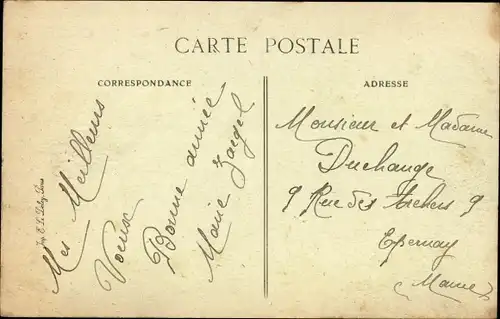 CARTE POSTALE
CORRESPONDANCE
Mes Meilleurs
Voeux
Bonne année
Marie Jaegel
ADRESSE
Monsieur et Madame
Duchange
9 Rue des Archers 9
Epernay
(Marne)